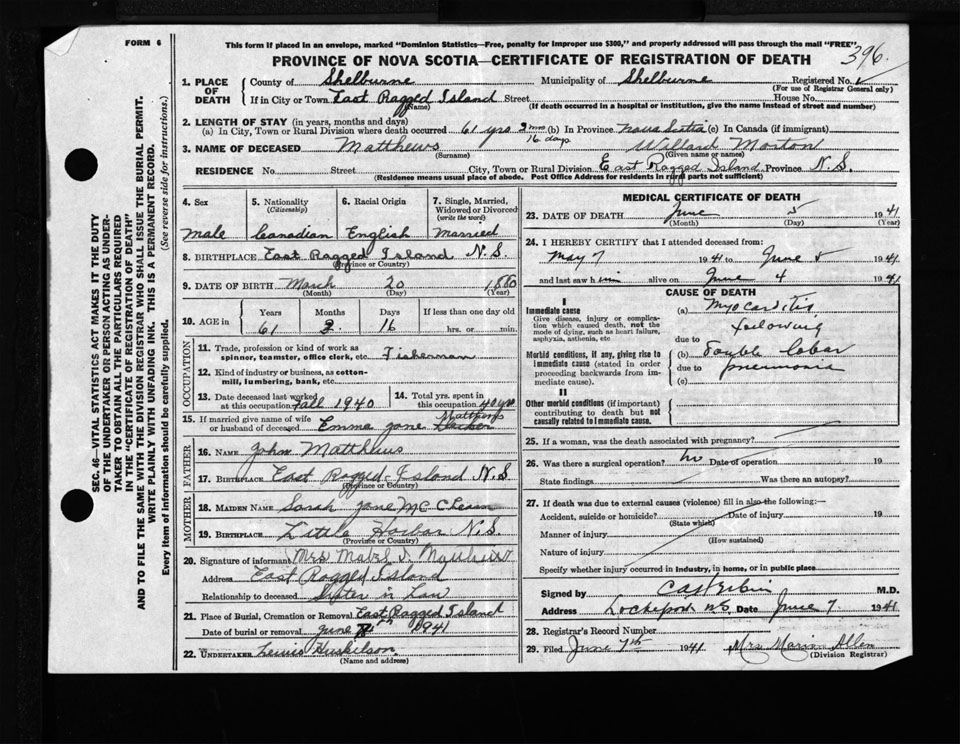 FORM 6
This form if placed in an envelope, marked "Dominion Statistics—Free, penalty for improper use $300," and properly addressed will pass through the mail "FREE"
396
PROVINCE OF NOVA SCOTIA—CERTIFICATE OF REGISTRATION OF DEATH
1. PLACE OF DEATH
County of Shelburne Municipality of Shelburne Registered No.
(For use of Registrar General only)
If in City or Town East Ragged Island Street House No.
(Name) (If death occurred in a hospital or institution, give the name instead of street and number)
2. LENGTH OF STAY (in years, months and days)
(a) In City, Town or Rural Division where death occurred 61 yrs 2 mos 16 days (b) In Province Nova Scotia (c) In Canada (if immigrant)
3. NAME OF DECEASED Matthews Willard Morton
(Surname) (Given name or names)
RESIDENCE No. Street City, Town or Rural Division East Ragged Island Province N.S.
(Residence means usual place of abode. Post Office Address for residents in rural parts not sufficient)
4. Sex
Male
5. Nationality
(Citizenship)
Canadian
6. Racial Origin
English
7. Single, Married, Widowed or Divorced
(write the word)
Married
8. BIRTHPLACE East Ragged Island N.S.
(Province or Country)
9. DATE OF BIRTH March 20 1880
(Month) (Day) (Year)
10. AGE in Years Months Days If less than one day old
61 2 16 hrs. or min.
OCCUPATION
11. Trade, profession or kind of work as spinner, teamster, office clerk, etc. Fisherman
12. Kind of industry or business, as cotton-mill, lumbering, bank, etc.
13. Date deceased last worked at this occupation Fall 1940
14. Total yrs. spent in this occupation 40 yrs
15. If married give name of wife or husband of deceased Emma Jane Matthews
FATHER
16. NAME John Matthews
17. BIRTHPLACE East Ragged Island N.S
(Province or Country)
MOTHER
18. MAIDEN NAME Sarah Jane
19. BIRTHPLACE Little Harbor N.S.
(Province or Country)
20. Signature of informant Mrs Mabel J. Matthews
Address East Ragged Island
Relationship to deceased Sister in Law
21. Place of Burial, Cremation or Removal East Ragged Island
Date of burial or removal June 1941
22. UNDERTAKER Lewis Huskilson
(Name and address)
MEDICAL CERTIFICATE OF DEATH
23. DATE OF DEATH June 5 1941
(Month) (Day) (Year)
24. I HEREBY CERTIFY that I attended deceased from:
May 7 1941 to June 5 1941
and last saw him alive on June 4 1941
CAUSE OF DEATH
I
Immediate cause
Give disease, injury or complication which caused death, not the mode of dying, such as heart failure, asphyxia, asthenia, etc
(a) Myocarditis
following
due to
Morbid conditions, if any, giving rise to immediate cause (stated in order proceeding backwards from immediate cause).
(b) Double Lobar
due to pneumonia
(c)
II
Other morbid conditions (if important) contributing to death but not causally related to immediate cause.
25. If a woman, was the death associated with pregnancy?
26. Was there a surgical operation? No Date of operation 19
State findings Was there an autopsy?
27. If death was due to external causes (violence) fill in also the following:—
Accident, suicide or homicide? Date of injury 19
(State which)
Manner of injury
(How sustained)
Nature of injury
Specify whether injury occurred in industry, in home, or in public place
Signed by M.D.
Address Lockeport NS Date June 7 1941
28. Registrar's Record Number
29. Filed June 7th 1941 Mrs Marion Allen
(Division Registrar)
SEC. 46—VITAL STATISTICS ACT MAKES IT THE DUTY
OF THE UNDERTAKER OR PERSON ACTING AS UNDER-
TAKER TO OBTAIN ALL THE PARTICULARS REQUIRED
IN THE "CERTIFICATE OF REGISTRATION OF DEATH"
AND TO FILE THE SAME WITH THE DIVISION REGISTRAR WHO SHALL ISSUE THE BURIAL PERMIT.
WRITE PLAINLY WITH UNFADING INK. THIS IS A PERMANENT RECORD.
Every item of information should be carefully supplied. (See reverse side for instructions.)